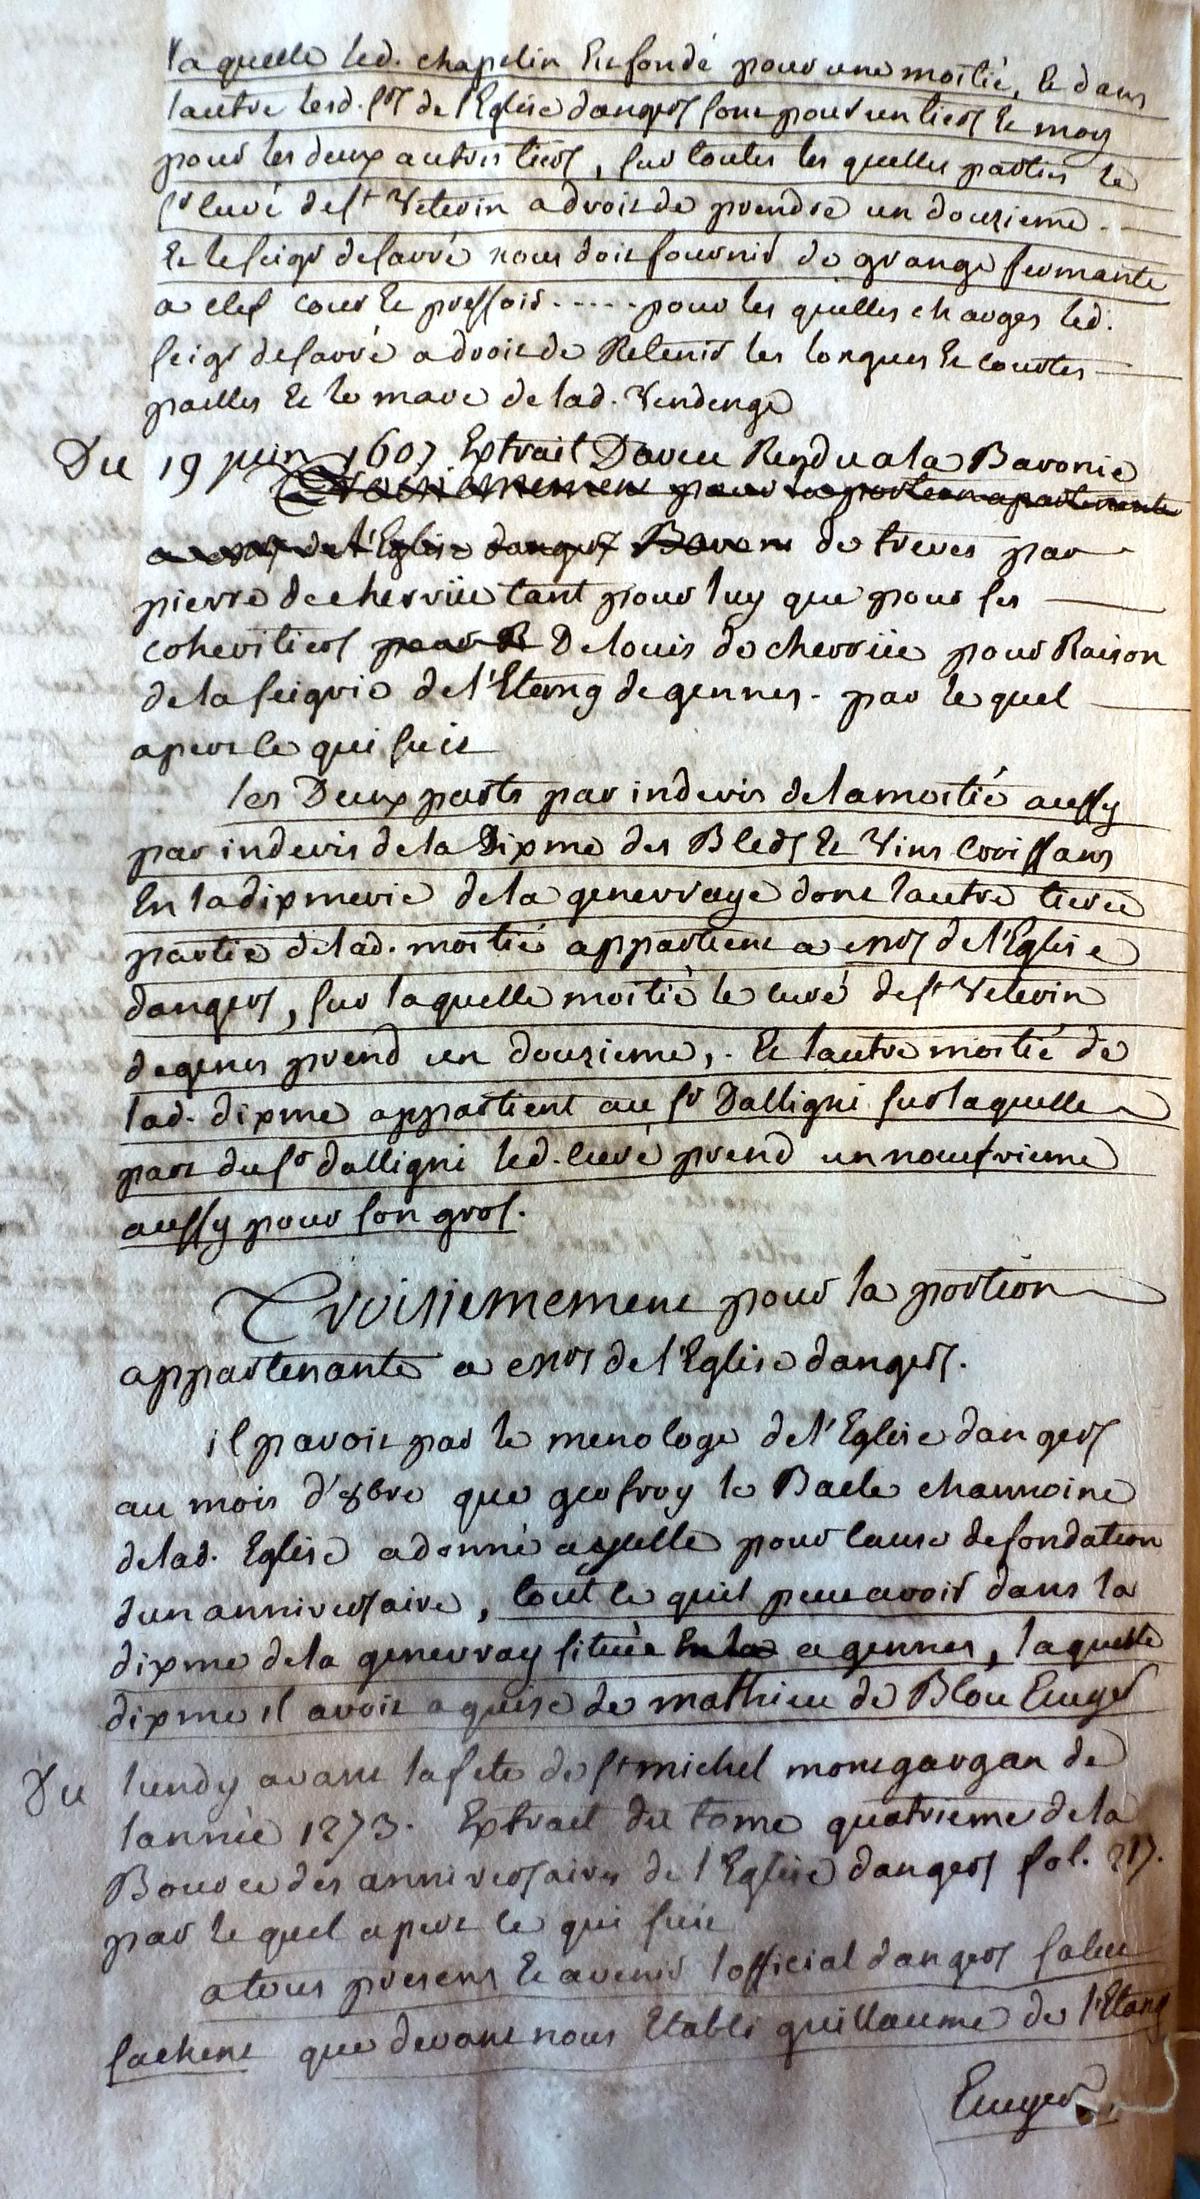 laquelle led. chapelin Est fondé pour une moitié, Et dans
lautre lesd. srs de l'Eglise dangers sont pour un tiers Et moy
pour les deux autres tiers, sur toutes les quelles parties le
sr curé de st Veterin a droit de prendre un douzieme.
Et le seigr de sarré nous doit fournir de grange fermante
a clef cour Et pressoir ..... pour les quelles charges led.
seigr de sarré a droit de Retenir les longues Et courtes
pailles Et le marc de lad. Vendenge
Du 19 juin 1607 Extrait Daveu Rendu a la Baronie
Troisiemement pour la portion apartenante
a mrs de l'Eglise dangers Baron de treves par
pierre de cherviie tant pour luy que pour ses
coheritiers De louis de cherviie pour Raison
de la seigrie de l'Etang de gennes. par le quel
apert ce qui suit
les Deux parts par indevis de la moitié aussy
par indevis de la Dixme des Bleds Et Vins Croissans
En la dixmerie de la genevraye dont lautre tierce
partie de lad. moitié appartient a mrs de l'Eglise
dangers, sur laquelle moitié le curé de st Veterin
de genes prend un douzieme,. Et lautre moitié de
lad. dixme appartient au sr Dalligni sur laquelle
part du sr dalligni led. curé prend un neufvieme
aussy pour son gros.
Troisiemement pour la portion
appartenante a mrs de l'Eglise dangers.
il paroit par le menologe de l'Eglise dangers
au mois d'8bre que geofroy le Bacle channoine
de lad. Eglise a donné a ycelle pour cause de fondation
dun anniversaire, tout ce quil peut avoir dans la
dixme de la genevray située En la a gennes, laquelle
dixme il avoit aquise de mathieu de Blou Ecuyer
Du lundy avant la fete de st michel montgargan de
lannée 1273. Extrait du tome quatrieme de la
Bource des anniversaires de l'Eglise dangers fol. 217.
par le quel apert ce qui suit
a tous presens Et avenir lofficial dangers salut
sachent que devant nous Etabli guillaume de l'Etang
Ecuyer